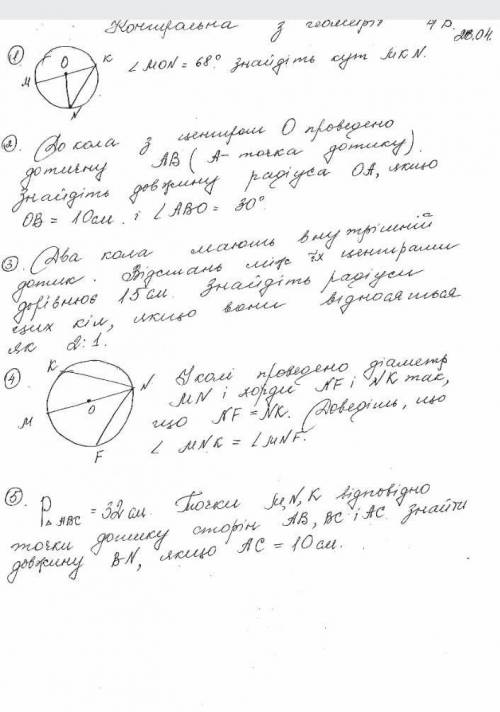 Контрольна з геометрії
28.04.
1 ∠MON = 68° знайдіть кут MKN.
O K M N
2. До кола з центром О проведено
дотичну АВ (А- точка дотику).
Знайдіть довжину радіуса ОА, якщо
ОВ = 10см. і ∠ABO = 30°.
3. Два кола мають внутрішній
дотик. Відстань між їх центрами
дорівнює 15см. Знайдіть радіуси
цих кіл, якщо вони відносяться
як 2:1.
4 У колі проведено діаметр
MN і хорди NF і NK так,
що NF = NK. Доведіть, що
∠MNK = ∠MNF.
K N O M F
5. P△ABC = 32см. Точки M, N, K відповідно
точки дотику сторін AB, BC і AC. Знайти
довжину BN, якщо AC = 10см.